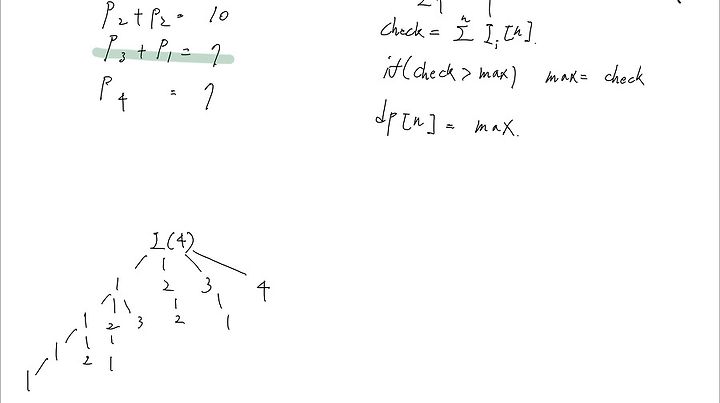 P₂ + P₂ = 10
P₃ + P₁ = 7
P₄ = 7
check = Σⁿ I_i [n].
if(check > max) max = check
dp[n] = max.
I(4)
1 2 3 4
1 2 3 2 1
1 2 1
1